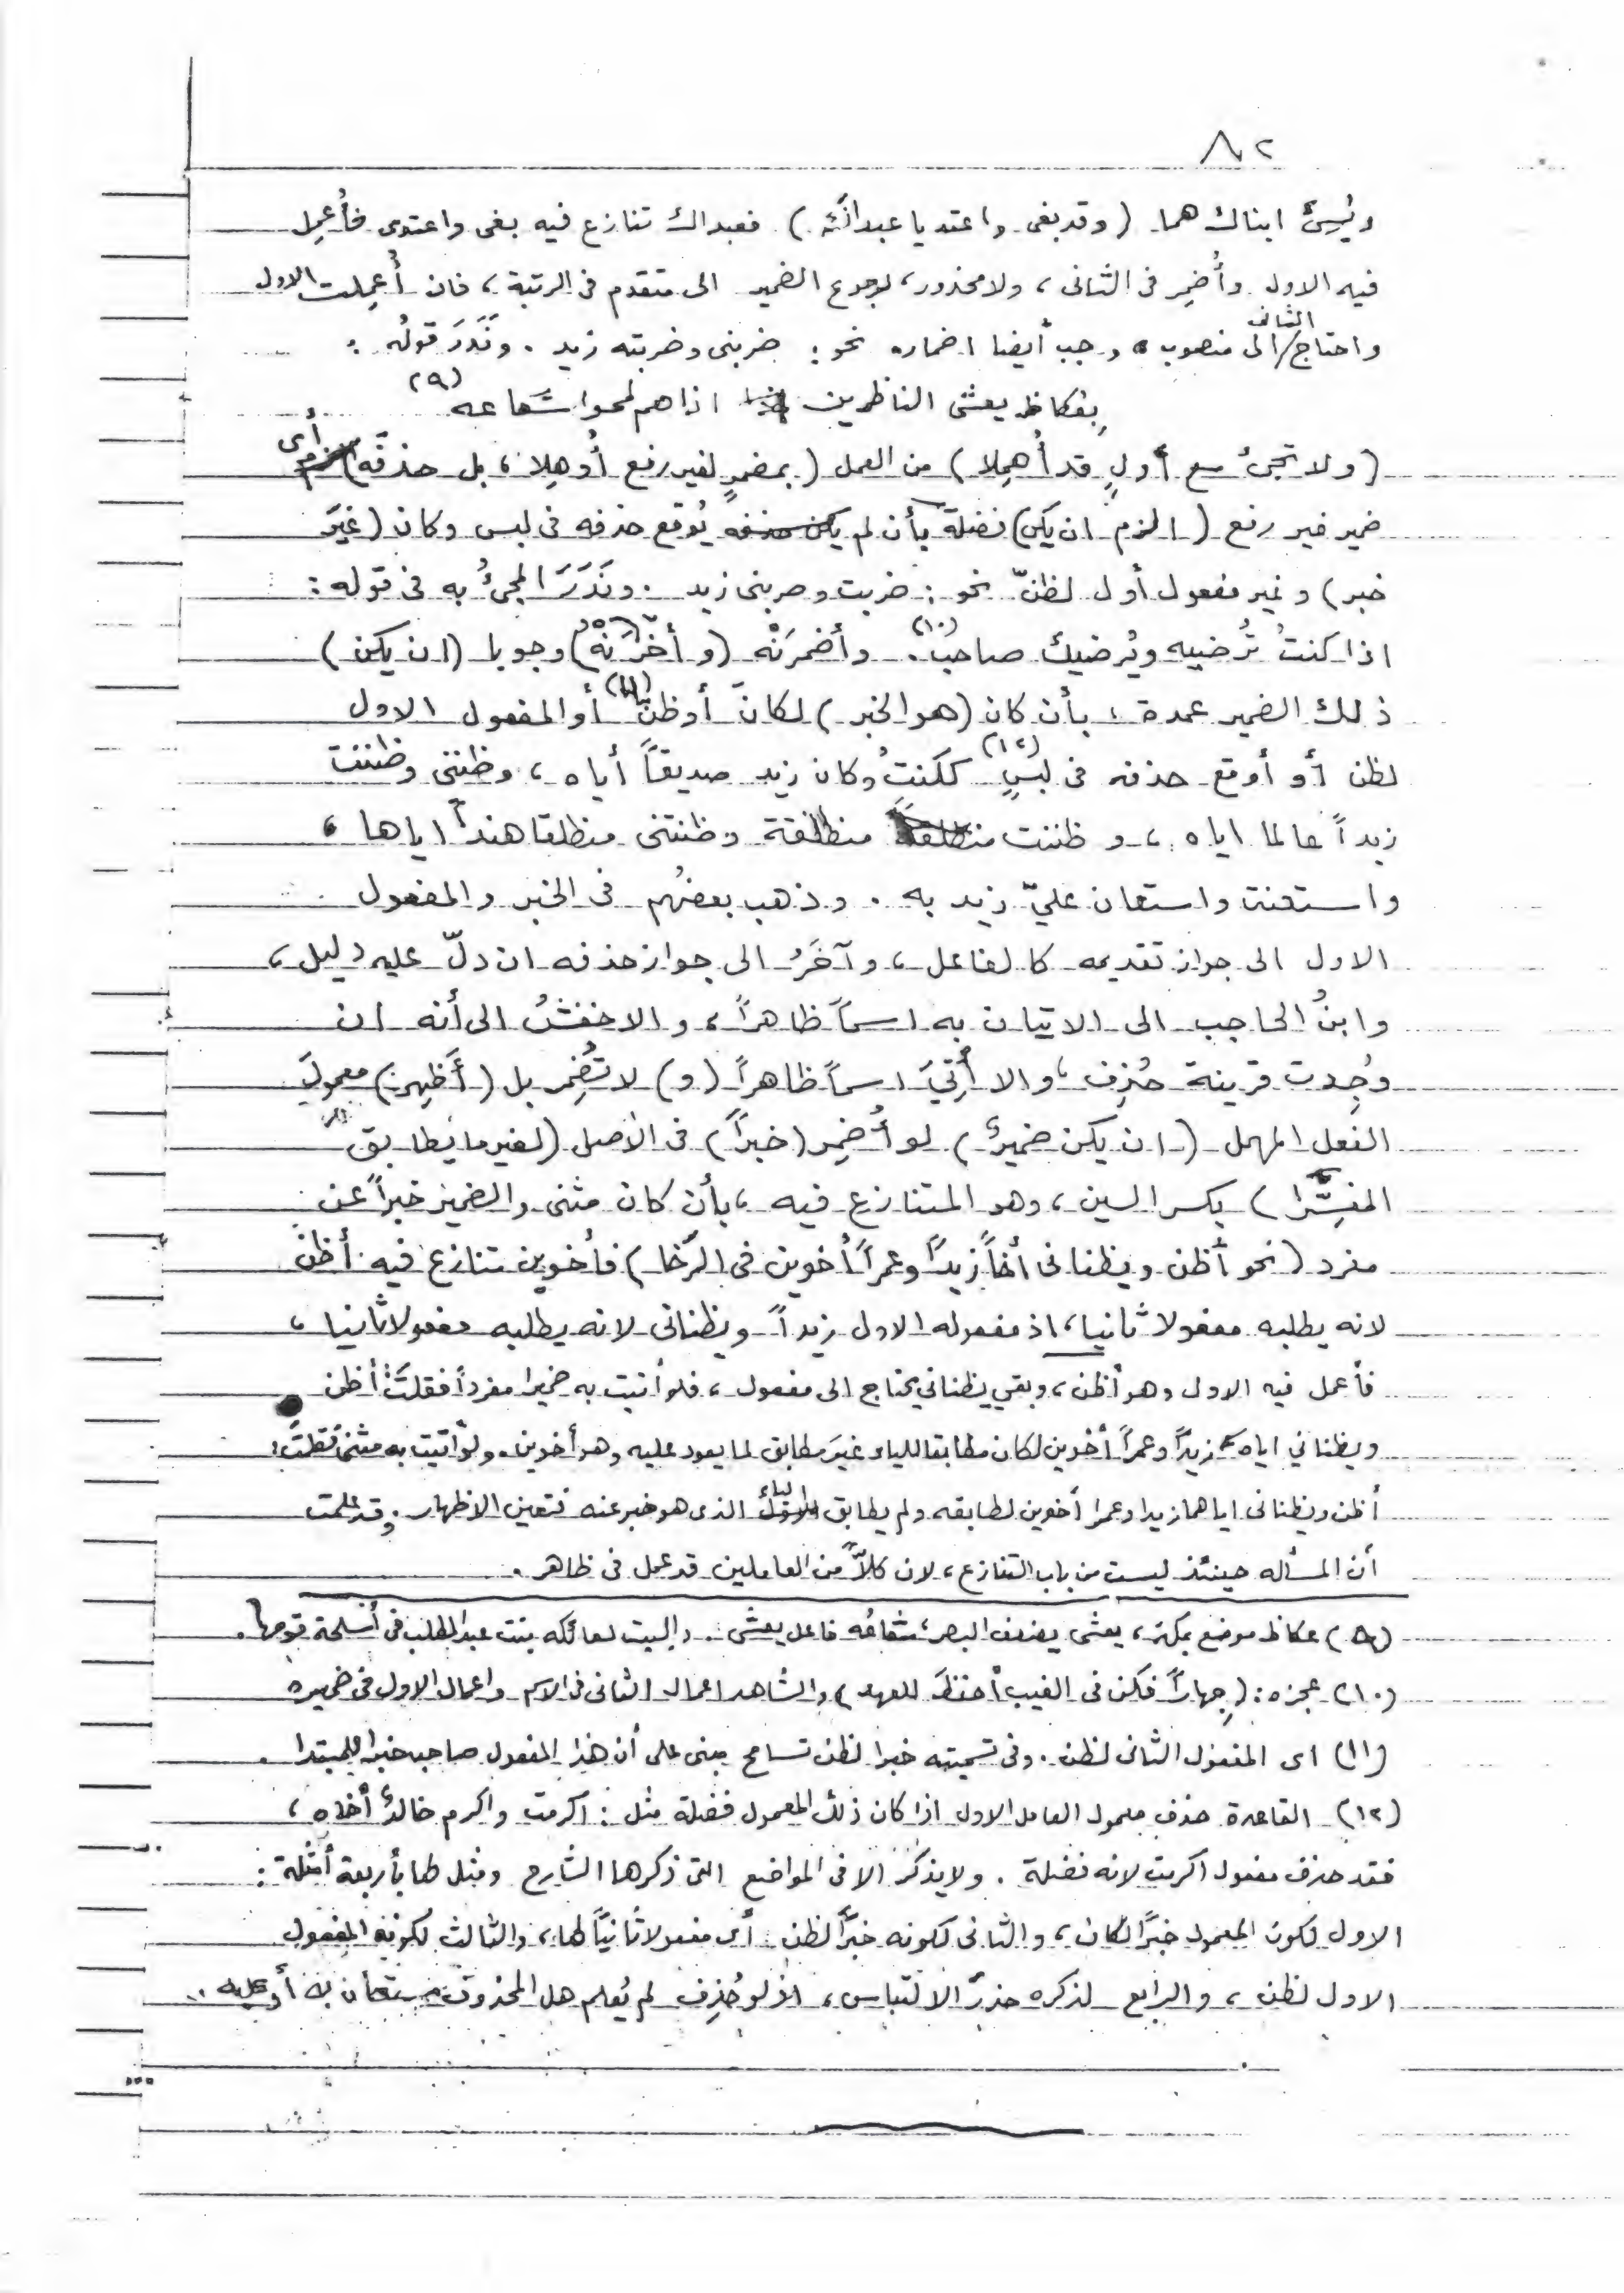 ٨٢
ويُسِيءُ ابناك هما. (وقد بغى واعتديا عبداكَ) فعبداك تنازع فيه بغى واعتدى فأُعمِل
فيه الاول وأُضمِر فى الثانى، ولا محذور، لرجوع الضمير الى متقدم فى الرتبة، فان أُعمِلت الاول
واحتاج/الثانى الى منصوب وجب أيضا اضماره نحو: ضربنى وضربته زيد. ونَدَرَ قولُه:
بِعكاظ يعشى الناظرين اذا هم لمحوا شعاعه (٩)
(ولا تجئ مع أولٍ قد أُهمِلا) من العمل (بمضمرٍ لغير رفع أُوهِلا، بل حذفَه) أى
ضمير غير رفع (الزم ان يكن) فضلة بأن لم يُوقع حذفه فى لبس وكان (غيرَ
خبر) وغير مفعول أول لظنّ نحو: ضربت وضربنى زيد. ونَدَرَ المجئُ به فى قوله:
اذا كنتَ تُرضيه ويُرضيك صاحبُ (١٠). وأضمرَنْه (وأخّرَنْه) وجوبا (ان يكن)
ذلك الضمير عمدة، بأن كان (هو الخبر) لكان أو ظنّ (١١) أو المفعول الاول
لظن أو أوقع حذفه فى لبسٍ (١٢) ككنتُ وكان زيد صديقاً أياه، وظننى وظننت
زيداً عالما اياه، وظننت منطلقة وظنتنى منطلقا هنداً اياها،
واستعنت واستعان عليّ زيد به. وذهب بعضُهم فى الخبر والمفعول
الاول الى جواز تقديمه كالفاعل، وآخَرُ الى جواز حذفه ان دلّ عليه دليل،
وابنُ الحاجب الى الاتيان به اسماً ظاهراً، والاخفشُ الى أنه ان
وُجِدت قرينة حُذِف، والا أُتِيَ اسماً ظاهراً (و) لا تُضمِر بل (أَظهِرَن) معمولَ
الفعل المهمل (ان يكن ضميرٌ) لو أُضمِر (خبراً) فى الأصل (لغير ما يُطابق
المفسِّرا) بكسر السين، وهو المتنازع فيه، بأن كان مثنى والضمير خبراً عن
مفرد (نحو أظن ويظنانى أخاً زيداً وعمراً أخوين فى الرَّخا) فأخوين تنازع فيه أظن
لانه يطلبه مفعولا ثانيا، اذ مفعوله الاول زيداً ويظنانى لانه يطلبه مفعولا ثانيا،
فأعمل فيه الاول وهو أظن، وبقي يظناني يحتاج الى مفعول، فلو أتيت به ضميرا مفرداً فقلتَ: أظن
ويظناني اياه زيداً وعمراً أخوين لكان مطابقا للياء غيرَ مطابق لما يعود عليه وهو أخوين. ولو أتيت به مثنى فقلتَ:
أظن ويظنانى اياهما زيدا وعمرا أخوين لطابقه ولم يطابق الياء الذى هو خبر عنه فتعين الاظهار. وقد علمت
أن المسأله حينئذ ليست من باب التنازع، لان كلاً من العاملين قد عمل فى ظاهر.
(٩) عكاظ موضع بمكة، يعشى يضعف البصر، شعاعُه فاعل يعشى. والبيت لعاتكه بنت عبد المطلب فى أسلحة قومها.
(١٠) عجزه: (جِهاراً فكن فى الغيب أحفظَ للعهد) والشاهد اعمال الثانى فى الاسم واعمال الاول فى ضميره
(١١) اى المفعول الثانى لظن. وفى تسميته خبرا لظن تسامح مبنى على أن هذا المفعول صاحب خبرا للمبتدا.
(١٢) القاعدة حذف معمول العامل الاول اذا كان ذلك المعمول فضلة مثل: اكرمت واكرم خالدٌ أخاه،
فقد حذف مفعول اكرمت لانه فضلة. ولا يذكر الا فى المواضع التى ذكرها الشارح ومثل لها بأربعة أمثلة:
الاول لكون المعمول خبرًا لكان، والثانى لكونه خبرًا لظن أى مفعولا ثانيًا لها، والثالث لكونه المفعول
الاول لظن، والرابع لذكره حذرَ الالتباس، اذ لو حُذِف لم يُعلم هل المحذوف مستعان به أو عليه..